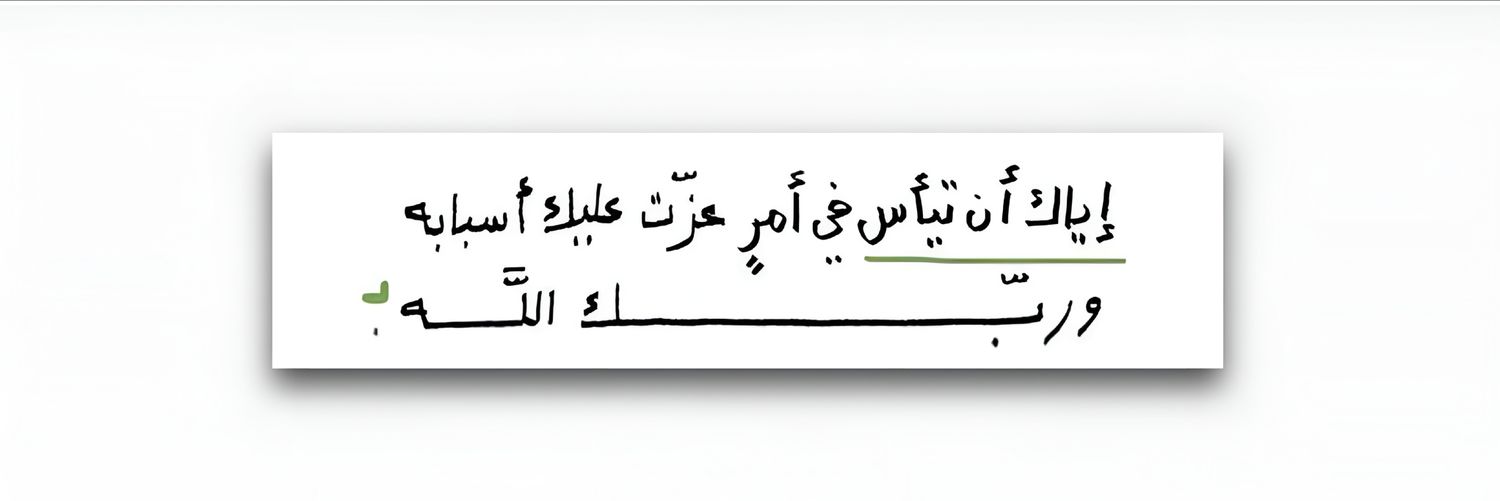 إياك أن تيأس في أمرٍ عزّت عليك أسبابه
وربّـــــــــك اللَّـــه .